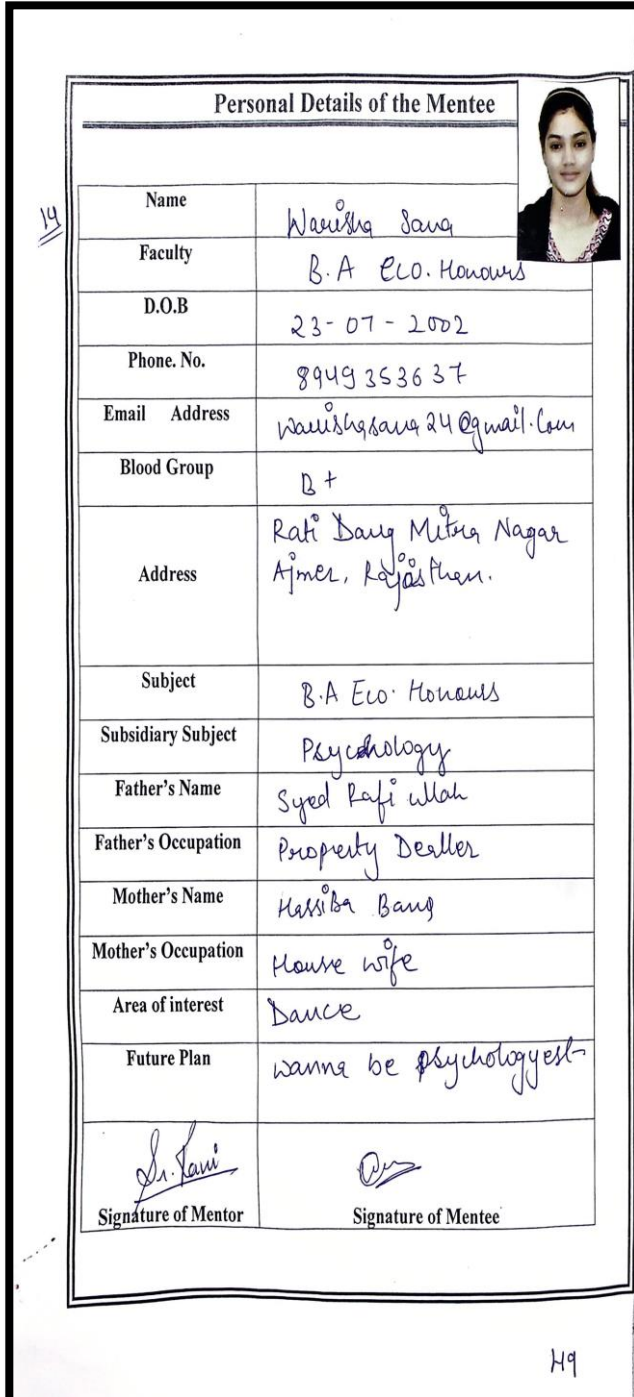 Personal Details of the Mentee
14
Name Warisha Sana
Faculty B.A Eco. Honours
D.O.B 23-07-2002
Phone. No. 8949353637
Email Address warishasana24@gmail.com
Blood Group B+
Address Rati Dang Mitra Nagar
Ajmer, Rajasthan.
Subject B.A Eco. Honours
Subsidiary Subject Psychology
Father's Name Syed Rafi ullah
Father's Occupation Property Dealler
Mother's Name Hassiba Bano
Mother's Occupation House wife
Area of interest Dance
Future Plan wanna be psychologyest
Sr. Rani
Signature of Mentor Signature of Mentee
49